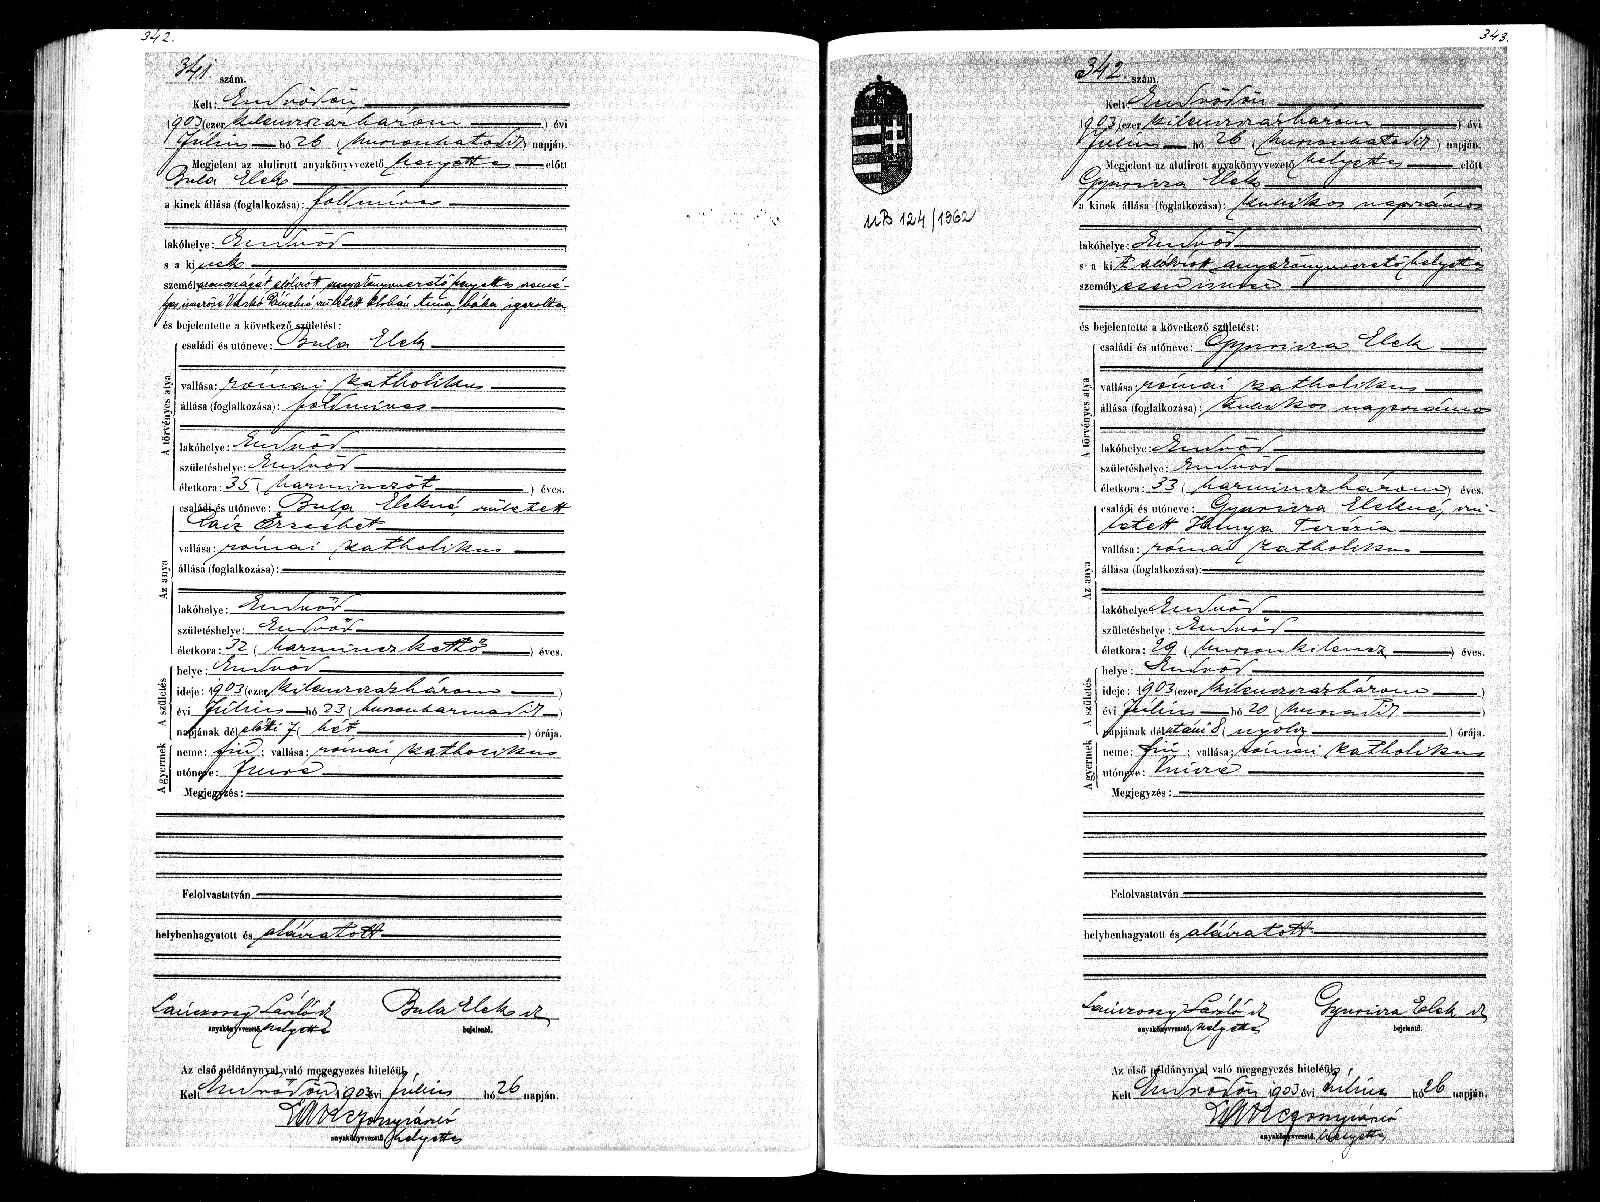 342.
341 szám.
Kelt: Endrődön
1903 (ezer kilenczszázhárom) évi
Július hó 26 (huszonhatodik) napján.
Megjelent az alulirott anyakönyvvezető helyettes előtt
Bula Elek
a kinek állása (foglalkozása): földmives
lakóhelye: Endrőd
s a ki nek
személyazonosságát alólirott anyakönyvvezető helyettes
Vaskó született Anna, bába igazolta
és bejelentette a következő születést:
A törvényes atya
családi és utóneve: Bula Elek
vallása: római katholikus
állása (foglalkozása): földmives
lakóhelye: Endrőd
születéshelye: Endrőd
életkora: 35 (harminczöt) éves.
Az anya
családi és utóneve: Bula Elekné, született
Erzsébet
vallása: római katholikus
állása (foglalkozása):
lakóhelye: Endrőd
születéshelye: Endrőd
életkora: 32 (harminczkettő) éves.
A születés
helye: Endrőd
ideje: 1903 (ezer kilenczszázhárom)
évi Július hó 23 (huszonharmadik)
napjának dél előtti 7 (hét) órája.
A gyermek
neme: fiú; vallása: római katholikus
utóneve: Imre
Megjegyzés:
Felolvastatván
helybenhagyatott és aláiratott
László k Bula Elek k
anyakönyvvezető helyettes bejelentő.
Az első példánynyal való megegyezés hiteléül,
Kelt Endrődön, 1903 évi Július hó 26 napján.
anyakönyvvezető helyettes
343.
342. szám.
Kelt Endrődön
1903 (ezer kilenczszázhárom) évi
Július hó 26 (huszonhatodik) napján.
Megjelent az alulirott anyakönyvvezető helyettes előtt
Gyuricza Elek
a kinek állása (foglalkozása): kubikos napszámos
lakóhelye: Endrőd
s a ki t alólirott anyakönyvvezető helyettes
személyesen ismer
és bejelentette a következő születést:
A törvényes atya
családi és utóneve: Gyuricza Elek
vallása: római katholikus
állása (foglalkozása): kubikos napszámos
lakóhelye: Endrőd
születéshelye: Endrőd
életkora: 33 (harminczhárom) éves.
Az anya
családi és utóneve: Gyuricza Elekné, szü-
letett Hunya Terézia
vallása: római katholikus
állása (foglalkozása):
lakóhelye: Endrőd
születéshelye: Endrőd
életkora: 29 (huszonkilencz) éves.
A születés
helye: Endrőd
ideje: 1903 (ezer kilenczszázhárom)
évi Július hó 20 (huszadik)
napjának dél utáni 8 (nyolcz) órája.
A gyermek
neme: fiú; vallása: római katholikus
utóneve: Vincze
Megjegyzés:
Felolvastatván
helybenhagyatott és aláiratott
László k Gyuricza Elek k
anyakönyvvezető helyettes bejelentő.
Az első példánynyal való megegyezés hiteléül,
Kelt Endrődön 1903 évi Július hó 26 napján.
anyakönyvvezető helyettes
UB 124/1962